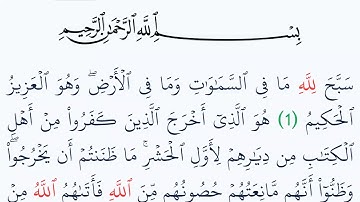 بِسْمِ اللَّهِ الرَّحْمَٰنِ الرَّحِيمِ
سَبَّحَ لِلَّهِ مَا فِي السَّمَٰوَٰتِ وَمَا فِي الْأَرْضِۖ وَهُوَ الْعَزِيزُ
الْحَكِيمُ (1) هُوَ الَّذِيٓ أَخْرَجَ الَّذِينَ كَفَرُوا۟ مِنْ أَهْلِ
الْكِتَٰبِ مِن دِيَٰرِهِمْ لِأَوَّلِ الْحَشْرِۚ مَا ظَنَنتُمْ أَن يَخْرُجُوا۟ۖ
وَظَنُّوٓا۟ أَنَّهُم مَّانِعَتُهُمْ حُصُونُهُم مِّنَ اللَّهِ فَأَتَىٰهُمُ اللَّهُ مِنْ